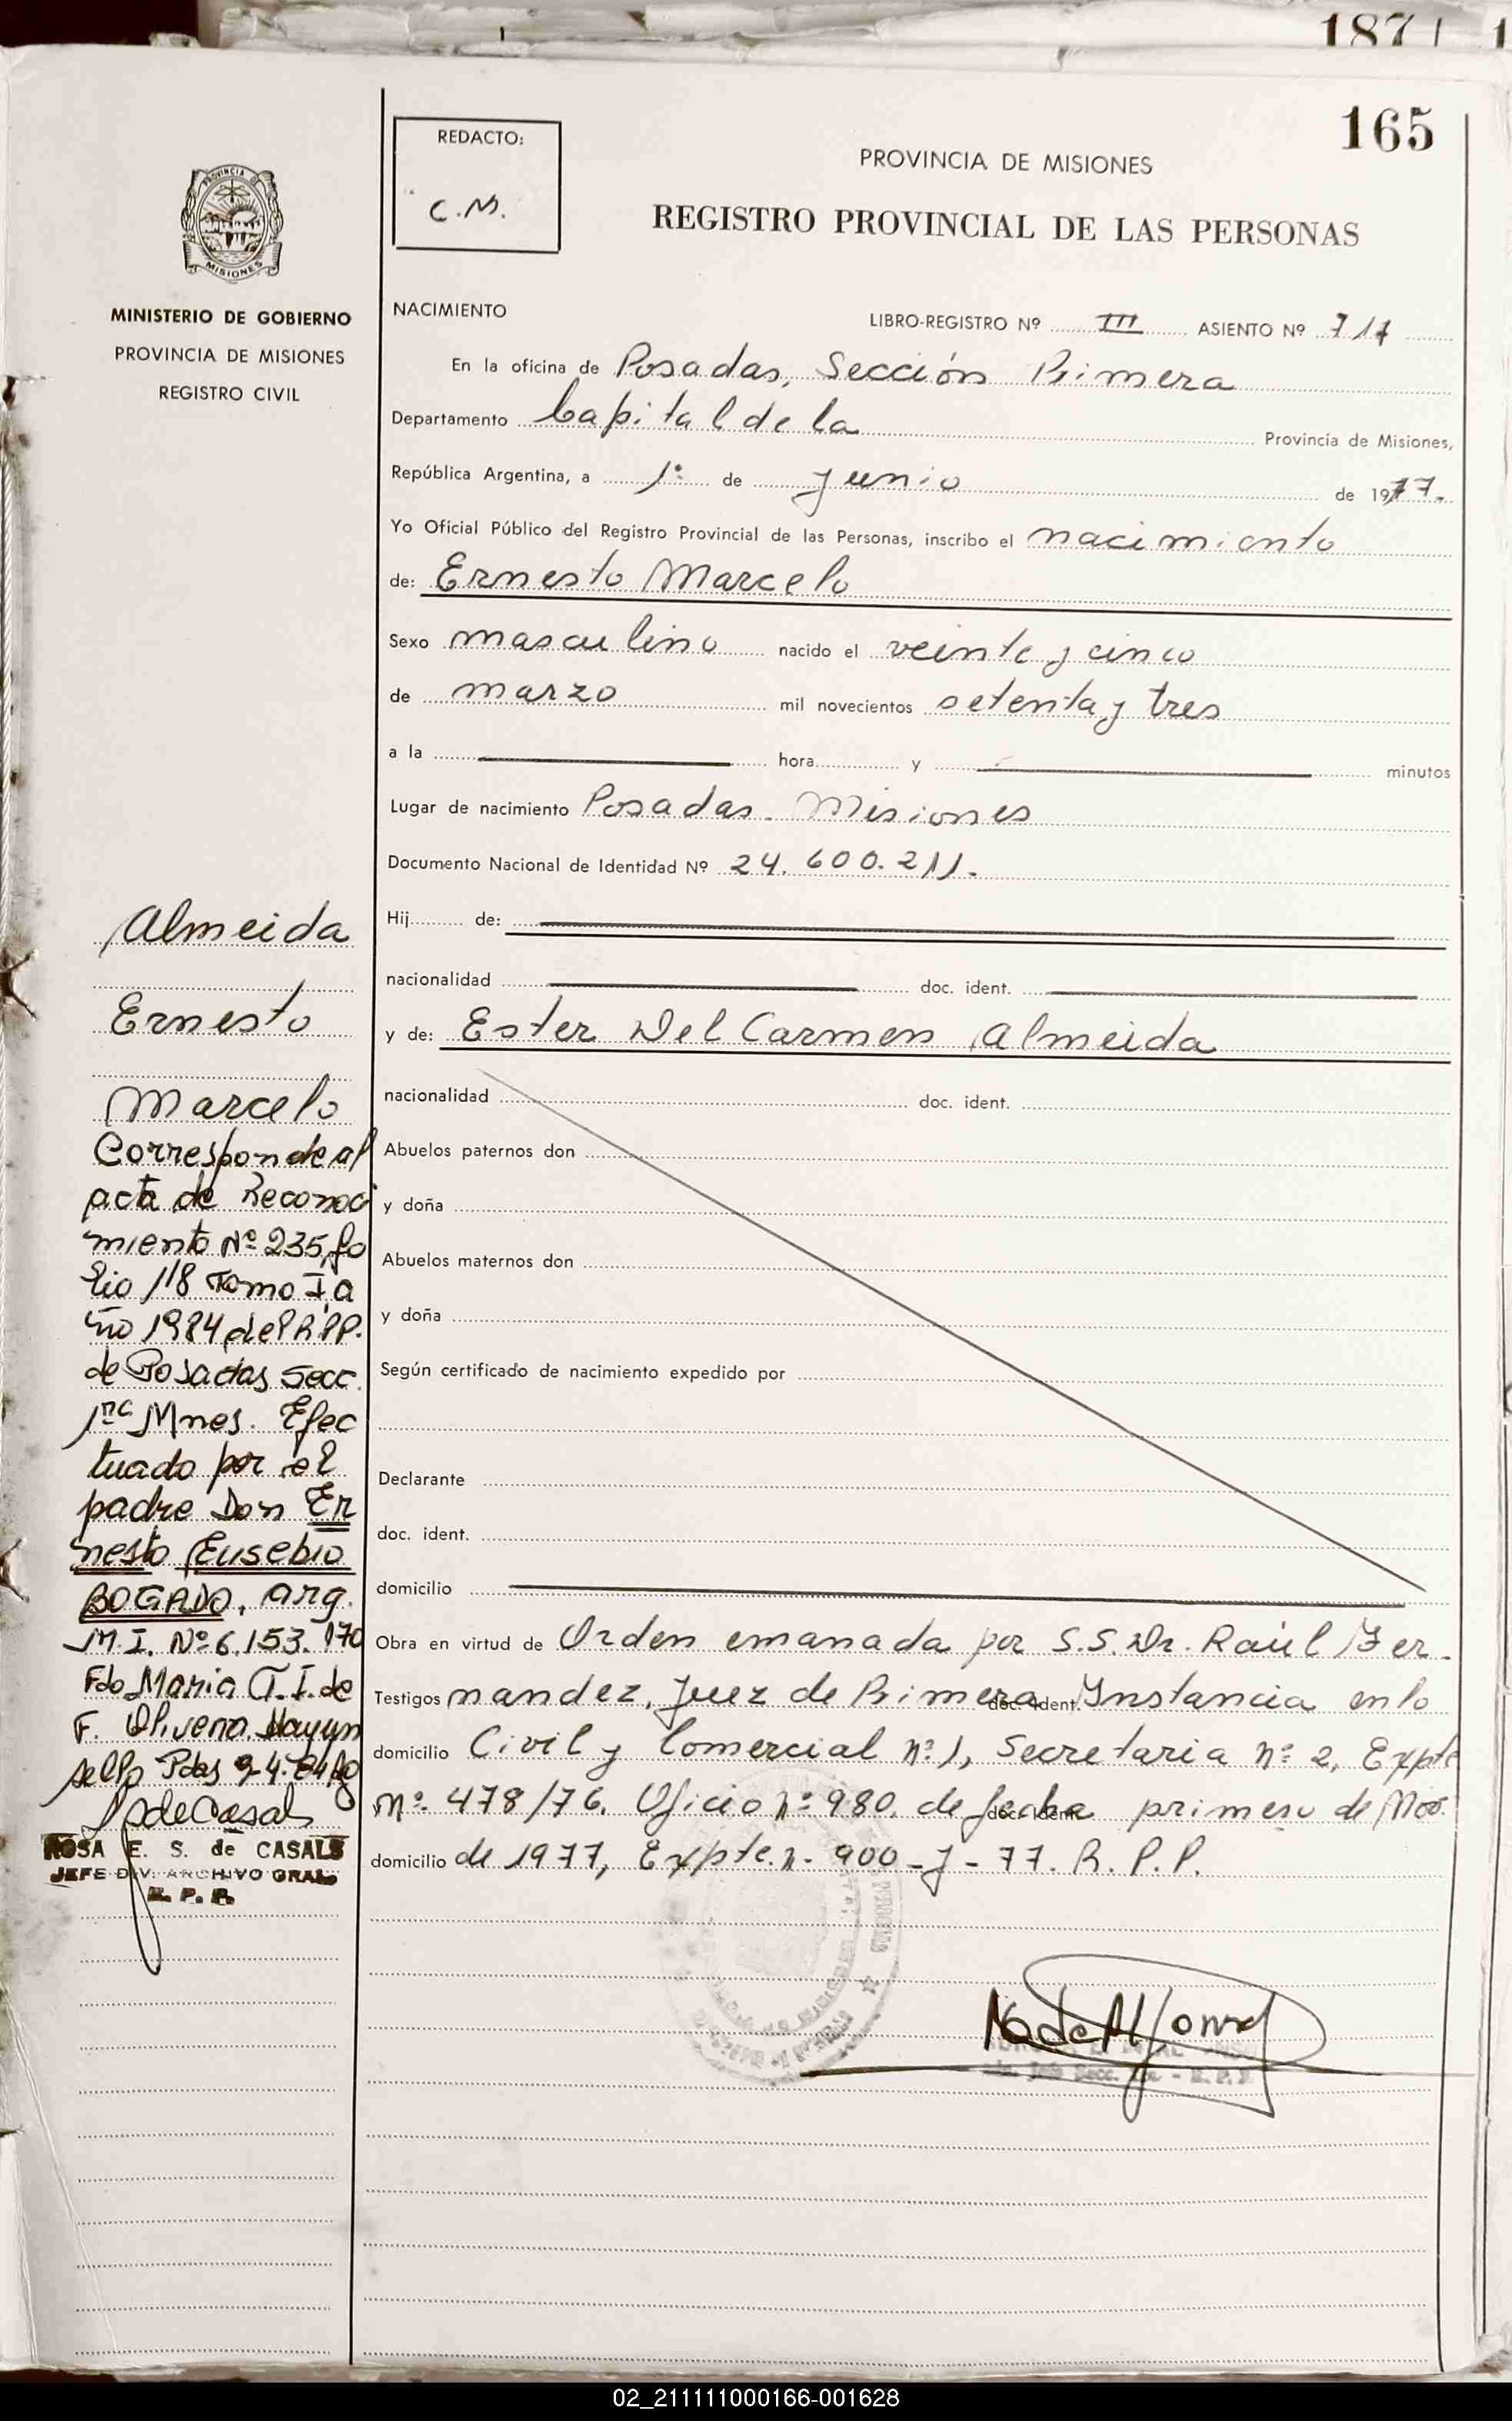 187
165
REDACTO:
C.M.
PROVINCIA DE MISIONES
REGISTRO PROVINCIAL DE LAS PERSONAS
PROVINCIA DE
MISIONES
MINISTERIO DE GOBIERNO
PROVINCIA DE MISIONES
REGISTRO CIVIL
NACIMIENTO
LIBRO-REGISTRO Nº III ASIENTO Nº 717
En la oficina de Posadas, Sección Primera
Departamento Capital de la Provincia de Misiones,
República Argentina, a 1º de Junio de 1977.
Yo Oficial Público del Registro Provincial de las Personas, inscribo el nacimiento
de: Ernesto Marcelo
Sexo masculino nacido el veinte y cinco
de marzo mil novecientos setenta y tres
a la hora y minutos
Lugar de nacimiento Posadas - Misiones
Documento Nacional de Identidad Nº 24.600.211.
Hij de:
nacionalidad doc. ident.
y de: Ester Del Carmen Almeida
nacionalidad doc. ident.
Abuelos paternos don
y doña
Abuelos maternos don
y doña
Según certificado de nacimiento expedido por
Declarante
doc. ident.
domicilio
Obra en virtud de Orden emanada por S.S. Dr. Raúl Fer-
Testigos nandez, Juez de Primera doc. ident. Instancia en lo
domicilio Civil y Comercial nº 1, Secretaria nº 2, Expte
Nº 478/76. Oficio nº 980. de fecha doc. ident. primero de
domicilio de 1977, Expte. n- 900-J-77. R.P.P.
Almeida
Ernesto
Marcelo
Corresponde al
acta de Reconoci
miento Nº 235, fo
lio 118 Tomo I, a
ño 1984 del R.PP.
de Posadas Secc.
1ra Mnes. Efec
tuado por el
padre Don Er
nesto Eusebio
BOGADO, arg.
M.I. Nº 6.153.170
Fdo Maria T. I. de
F. Olivera.
sello Pdas 9-4-84
ROSA E. S. de CASALS
JEFE DIV. ARCHIVO GRAL.
R. P. P.
02_211111000166-001628